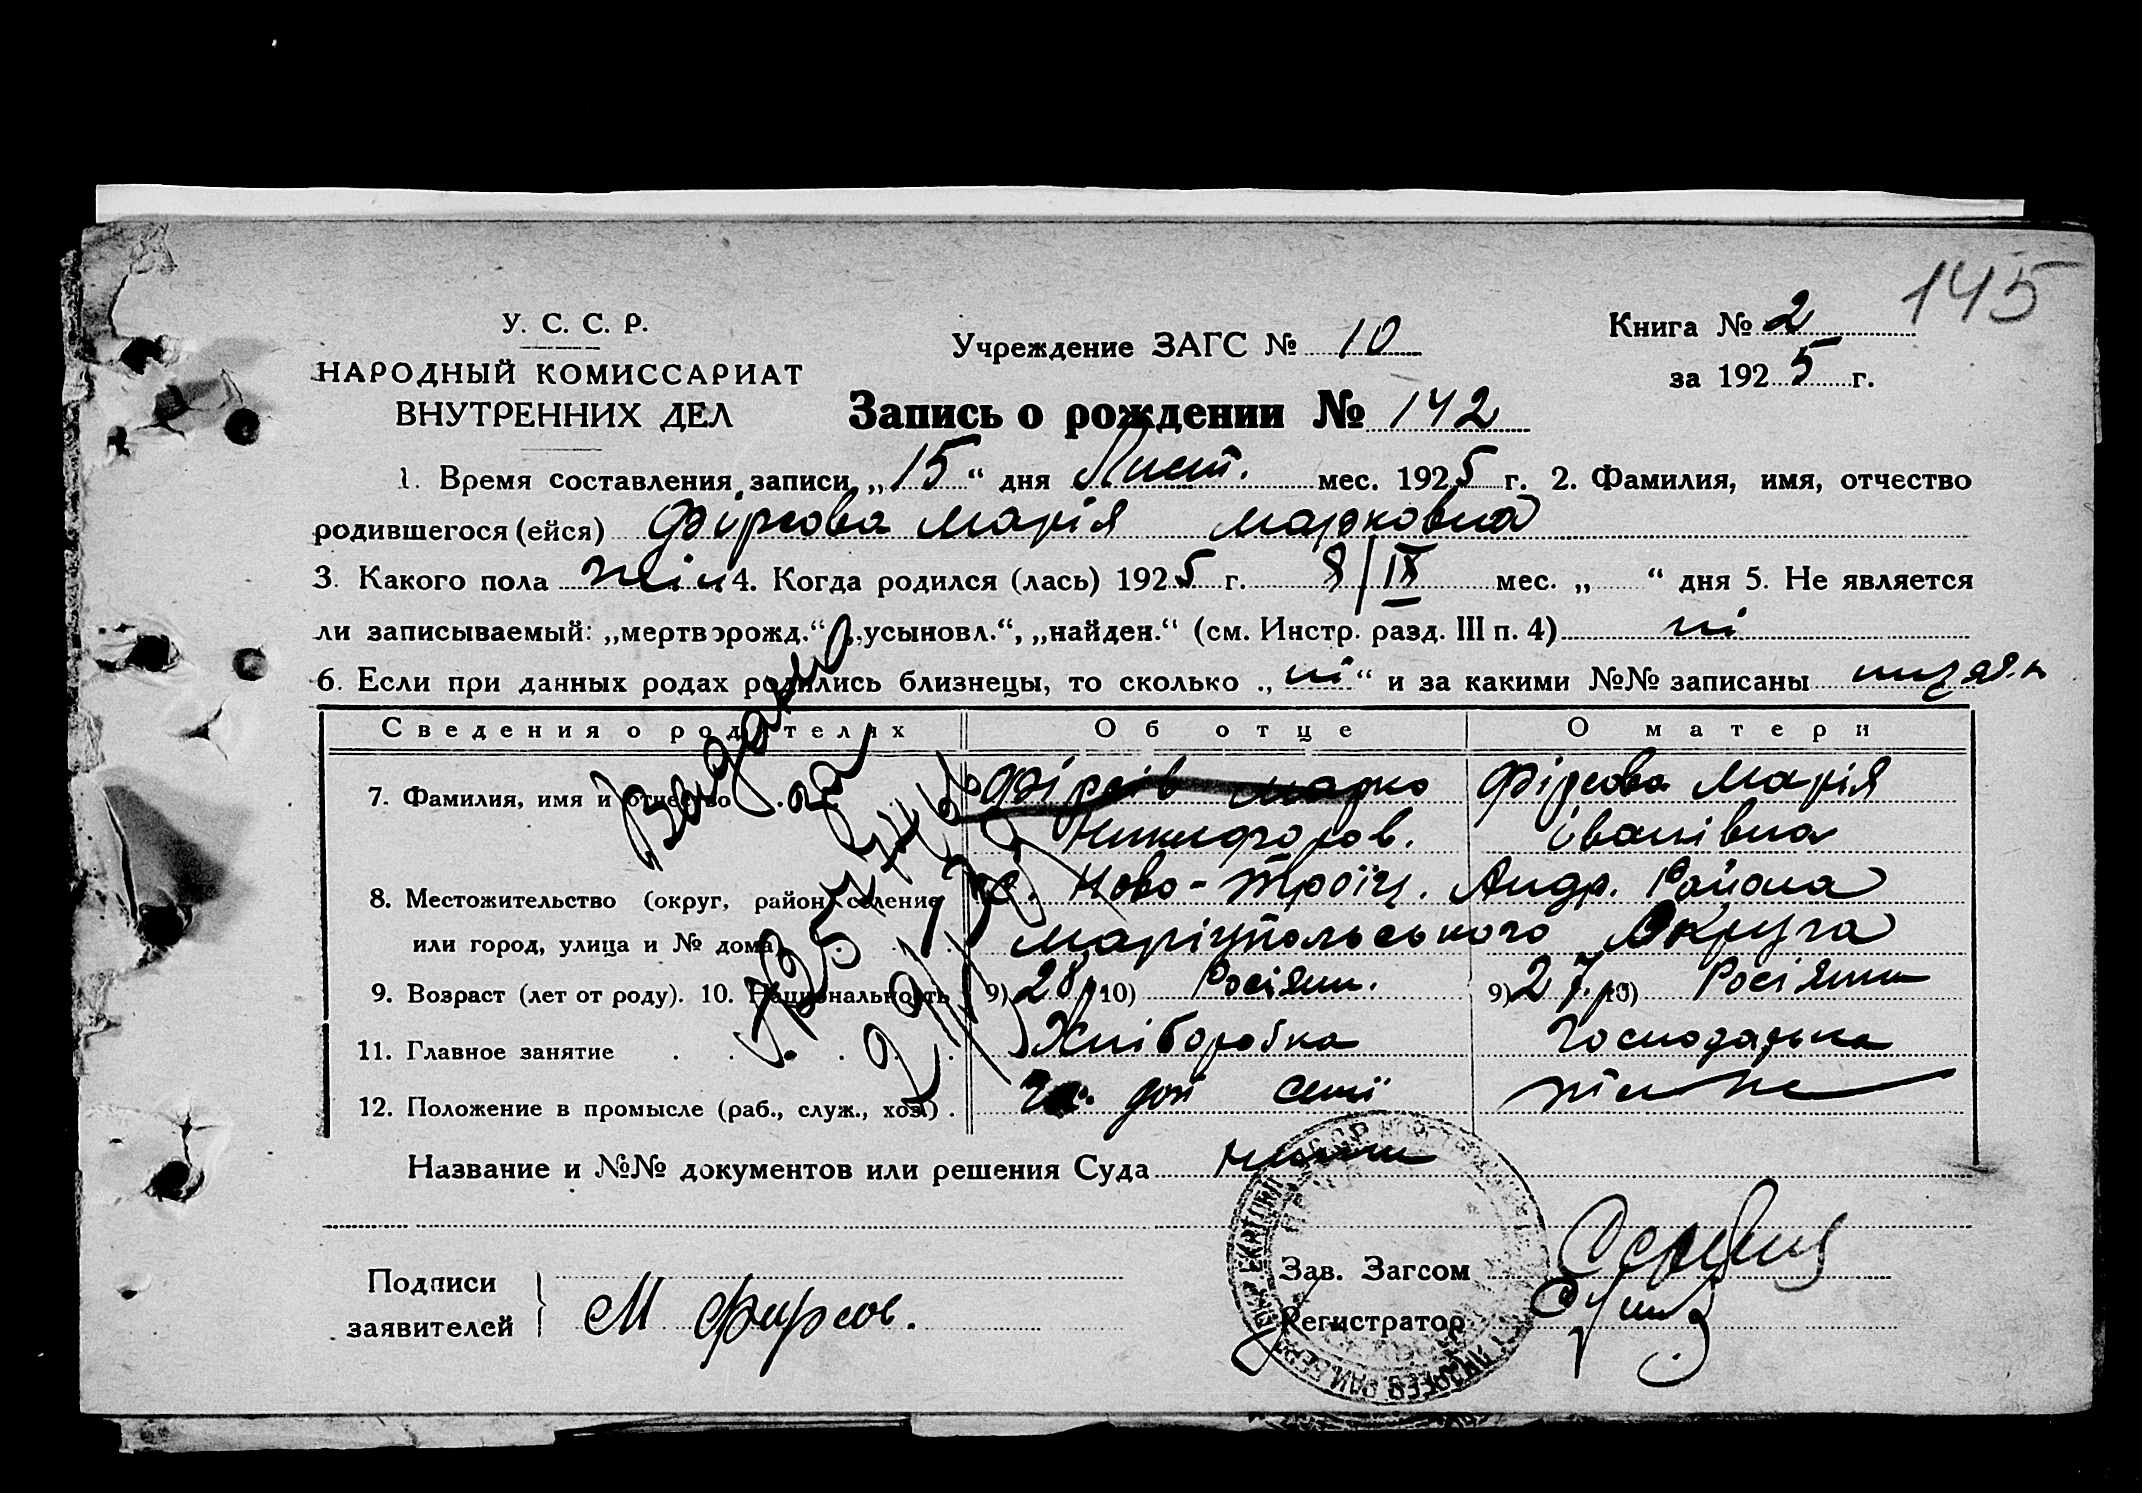 145
У. С. С. Р.
НАРОДНЫЙ КОМИССАРИАТ
ВНУТРЕННИХ ДЕЛ
Учреждение ЗАГС № 10
Книга № 2
за 1925 г.
Запись о рождении № 142
1. Время составления записи „15“ дня Лист. мес. 1925 г. 2. Фамилия, имя, отчество
родившегося (ейся) Фірсова Марія Марковна
3. Какого пола жін 4. Когда родился (лась) 1925 г. 8/IX мес. „ “ дня 5. Не является
ли записываемый: „мертворожд.“, „усыновл.“, „найден.“ (см. Инстр. разд. III п. 4) ні
6. Если при данных родах родились близнецы, то сколько „ні“ и за какими №№ записаны
Сведения о родителях Об отце О матери
7. Фамилия, имя и отчество Фірсів Марко Фірсова Марія
Никифоров. Іванівна
8. Местожительство (округ, район, селение с. Ново-Троїц. Андр. Района
или город, улица и № дома) Маріупольського Округа
9. Возраст (лет от роду). 10. Национальность 9) 28 р 10) Росіян. 9) 27 р. 10) Росіянка
11. Главное занятие Хліборобка Господарька
12. Положение в промысле (раб., служ., хоз.) Чл. сем'ї
Название и №№ документов или решения Суда
Подписи
заявителей М Фирсов.
Зав. Загсом
Регистратор